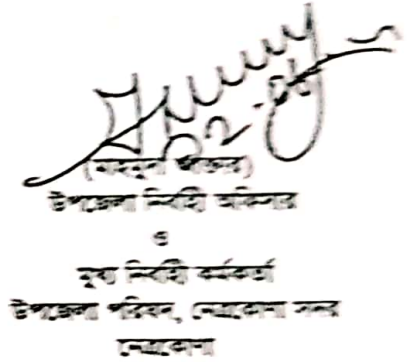 (মাহমুদা আক্তার)
উপজেলা নির্বাহী অফিসার
ও
মুখ্য নির্বাহী কর্মকর্তা
উপজেলা পরিষদ, নেত্রকোনা সদর
নেত্রকোনা